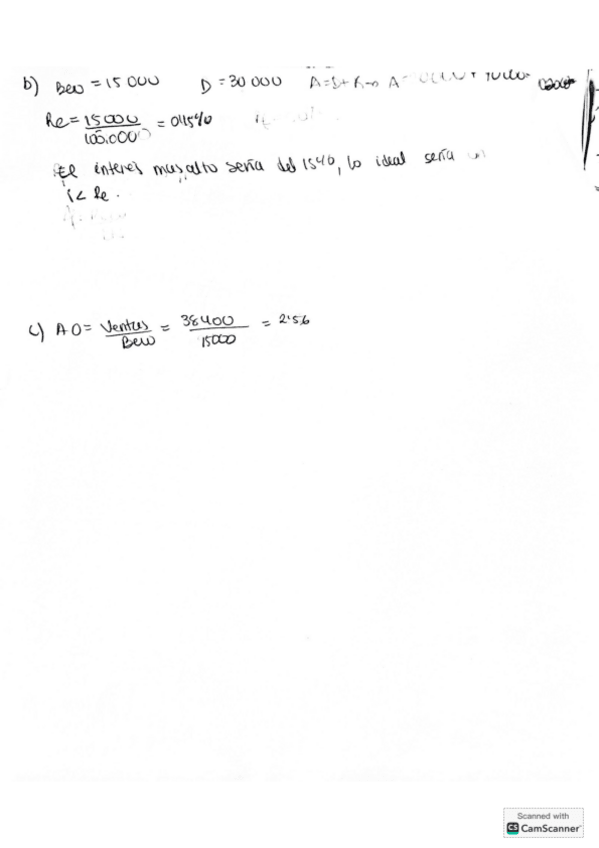 b) Beu = 15 000 D = 30 000 A = D + K → A =
Re = 15 000 / 100.000 = 0'15%
El interés mas alto sería del 15%, lo ideal sería un
i < Re.
c) AO = Ventas / Beu = 38400 / 15000 = 2'56
Scanned with
CS CamScanner